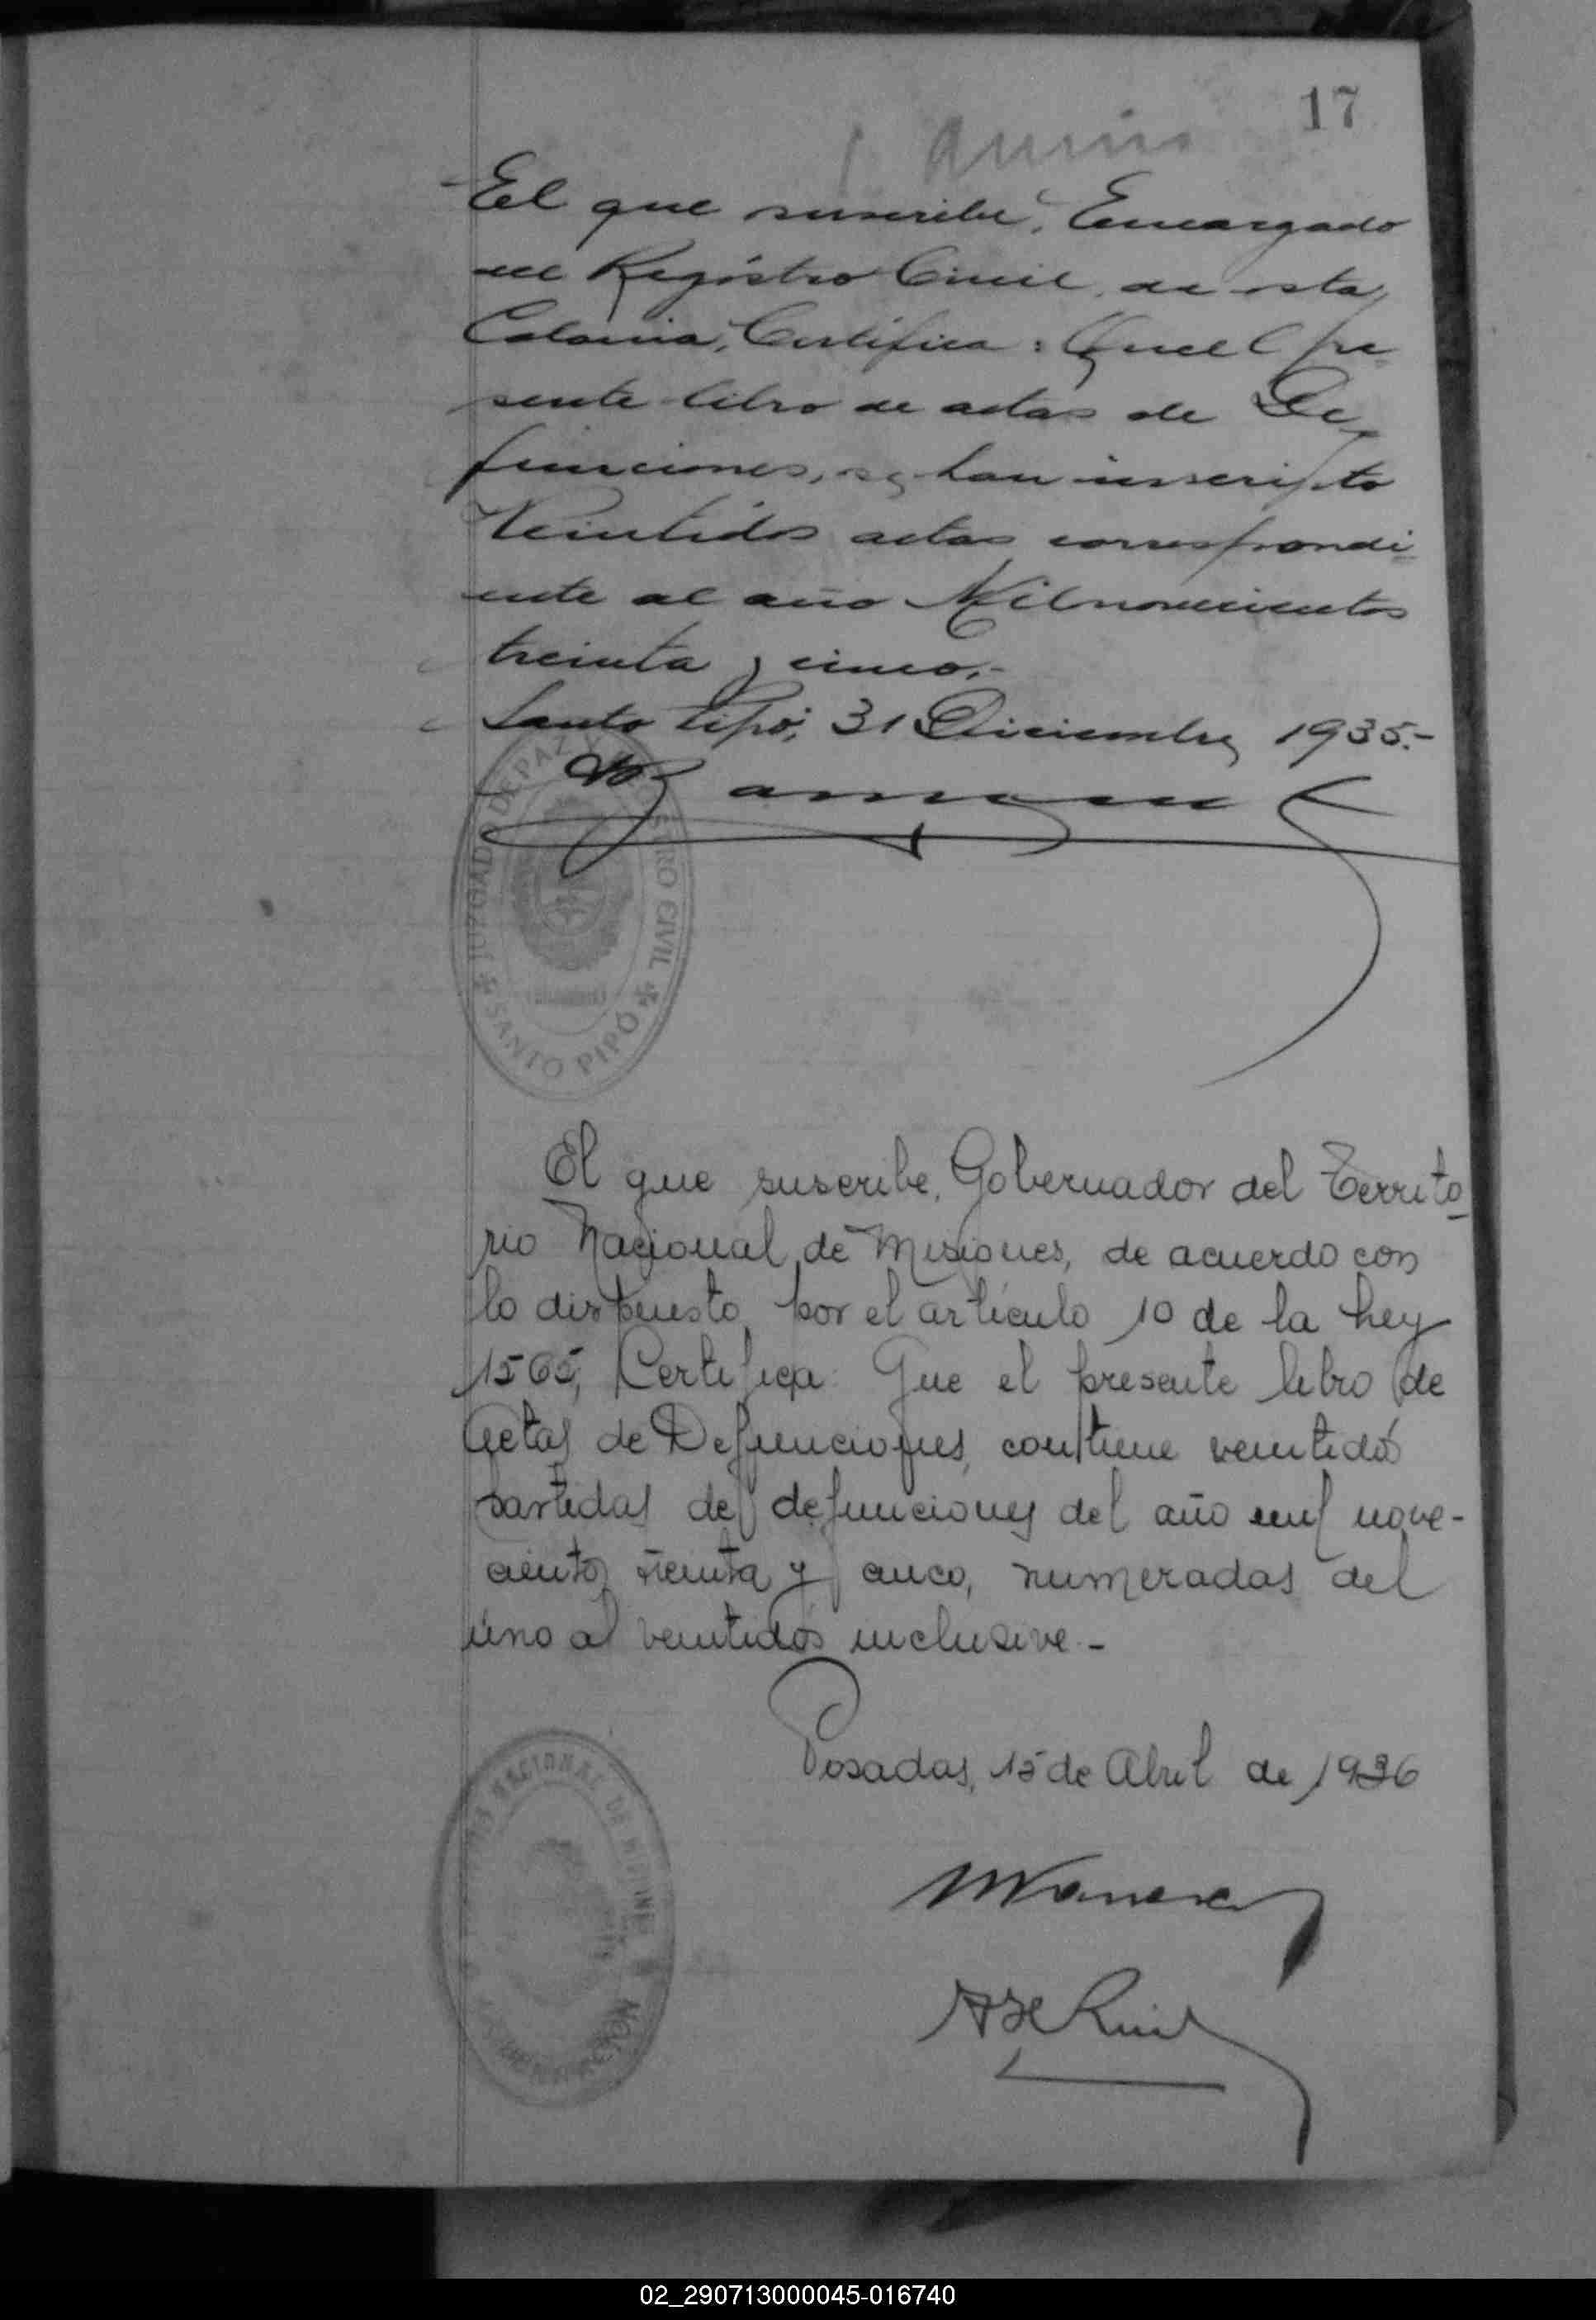 17
El que suscribe, Encargado
del Registro Civil de esta
Colonia, Certifica: Que el pre-
sente libro de actas de De-
funciones, se han inscripto
Veintidos actas correspondi-
ente al año Mil novecientos
treinta y cinco.-
Santo Pipó, 31 Diciembre 1935.-
JUZGADO DE PAZ Y REGISTRO CIVIL
SANTO PIPÓ
El que suscribe, Gobernador del Territo-
rio Nacional de Misiones, de acuerdo con
lo dispuesto por el artículo 10 de la Ley
1565, Certifica: Que el presente libro de
Actas de Defunciones, contiene veintidós
partidas de defunciones del año mil nove-
cientos treinta y cinco, numeradas del
uno al veintidós inclusive.-
Posadas, 15 de Abril de 1936
NACIONAL DE MISIONES
02_290713000045-016740